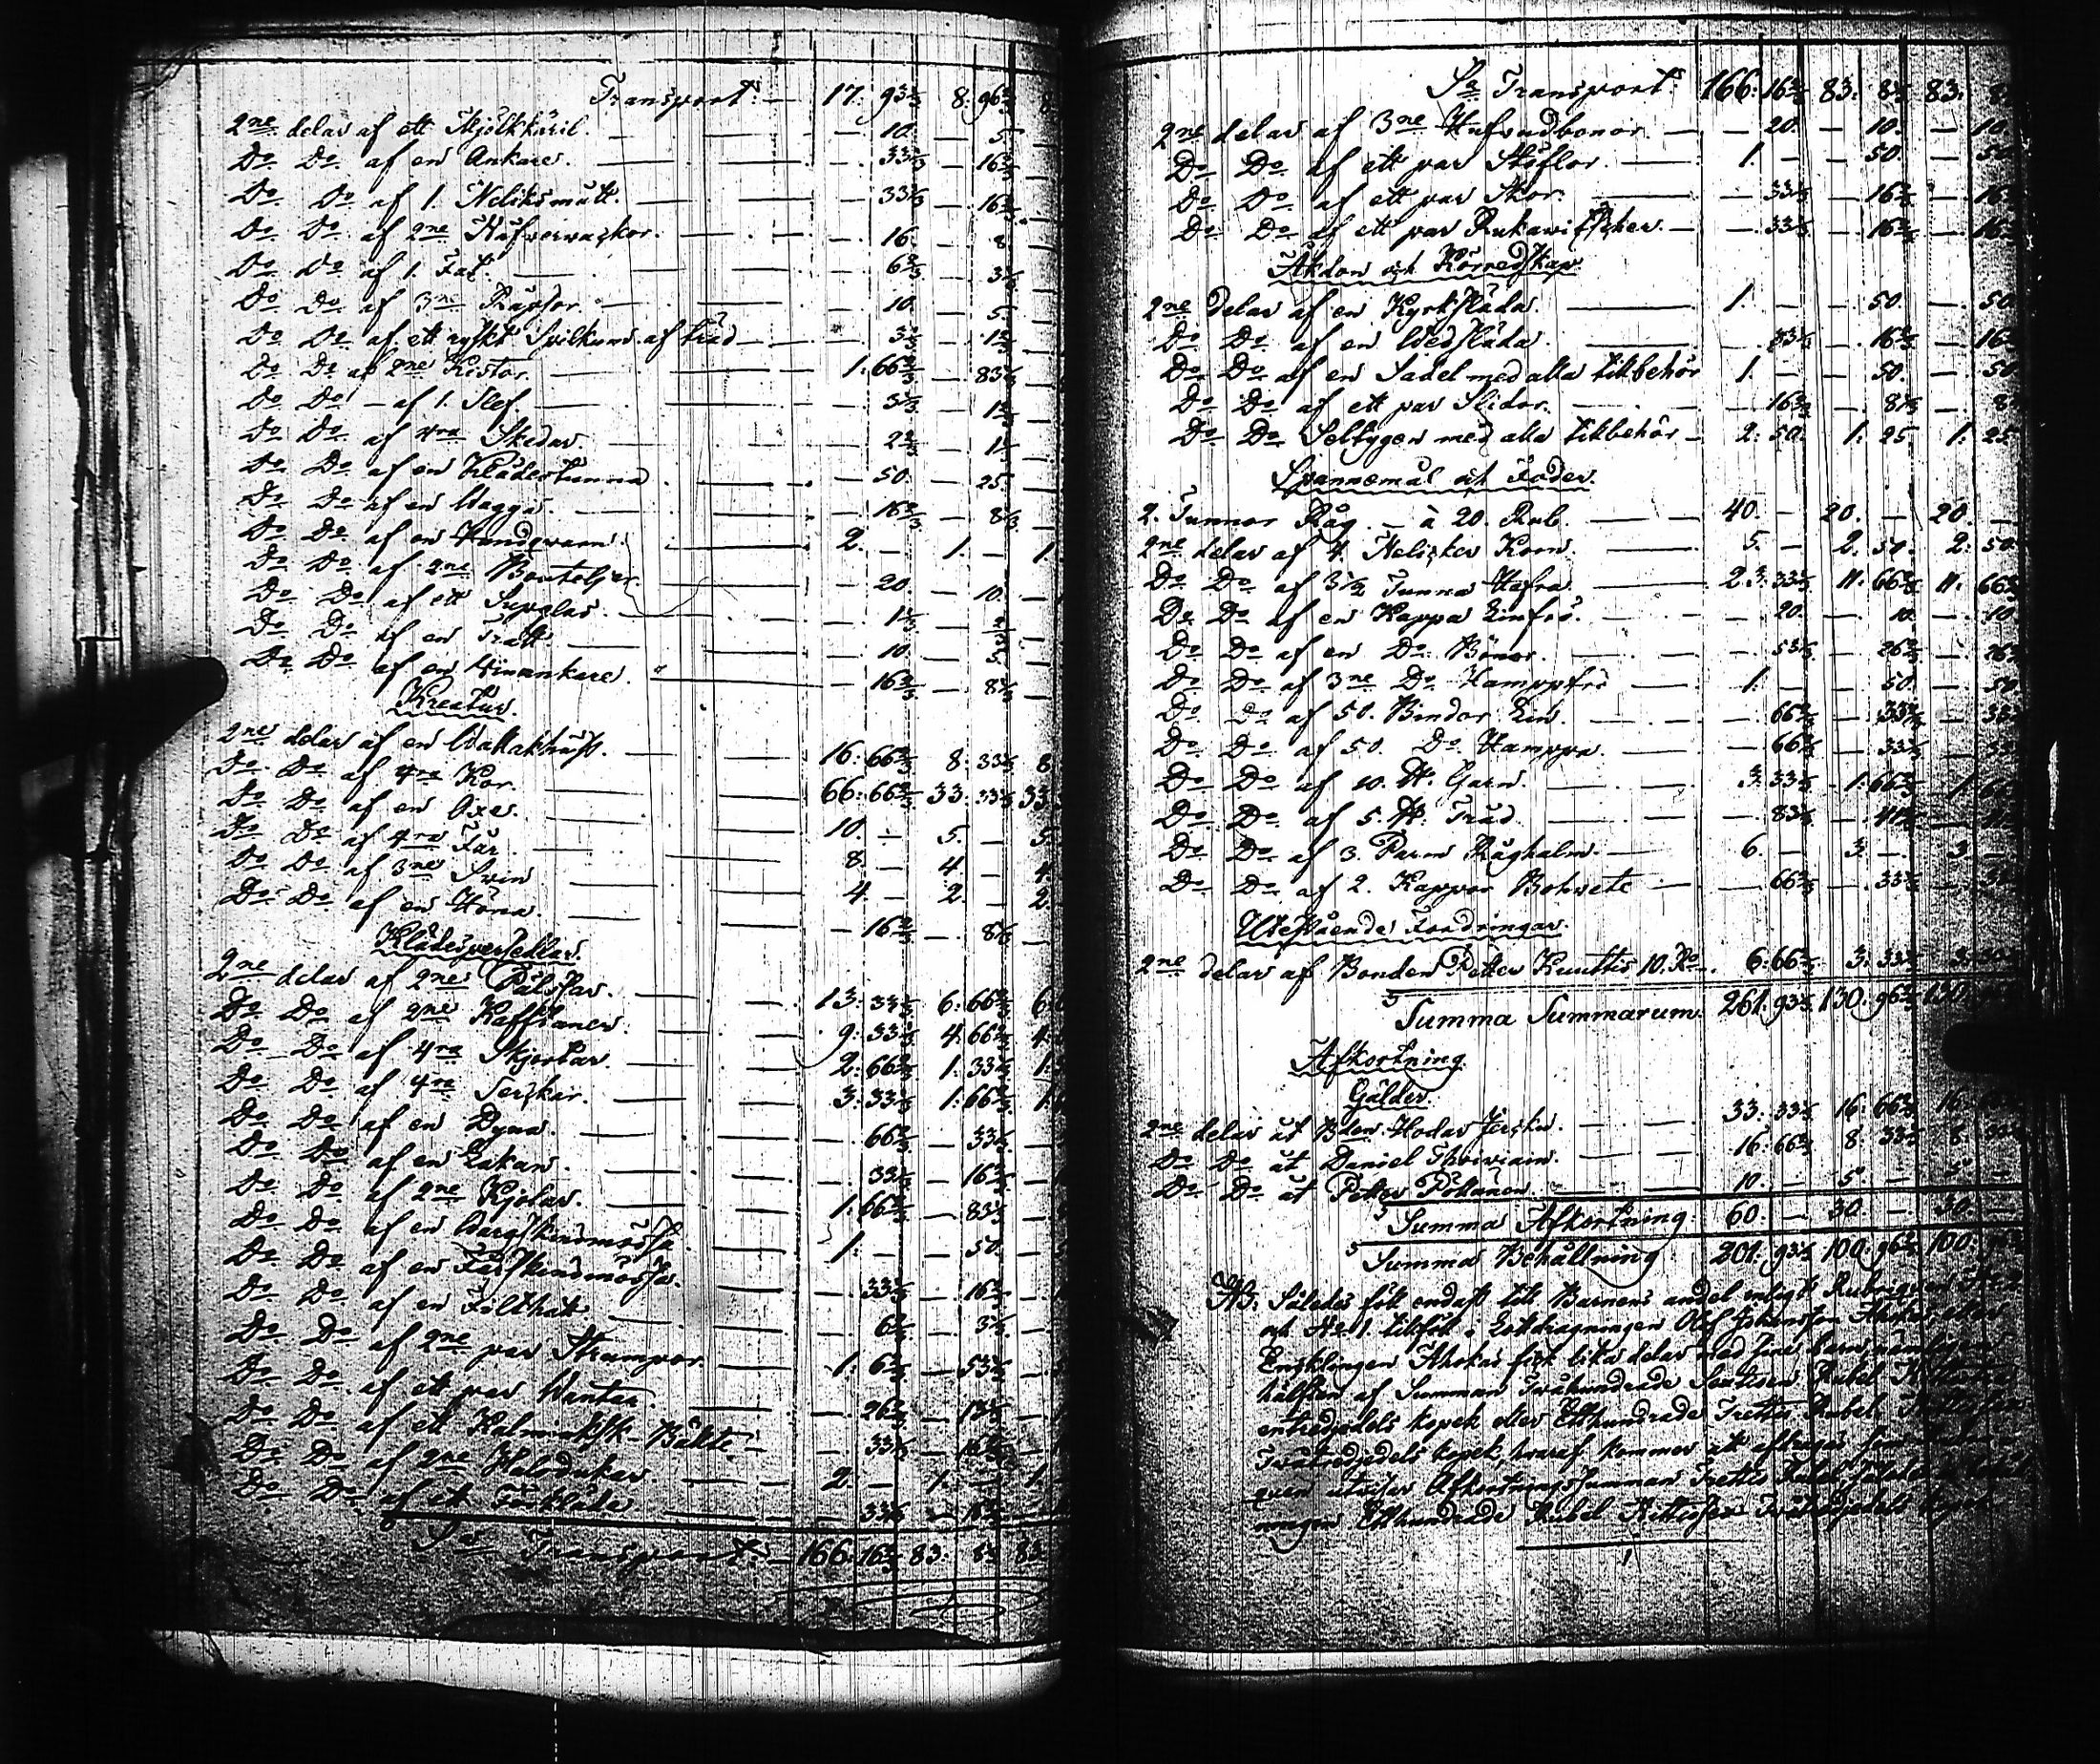 Transport: — 17: 93⅓ 8: 96⅔
2ne delar af ett Mjölkkäril. — 10. — 5.
Do Do af en Ankare. — 33⅓ — 16⅔
Do Do af 1. Neliksmått. — 33⅓ — 16⅔
Do Do af 2ne — 16. — 8
Do Do af 1. Fat. — 6⅔ — 3⅓
Do Do af 3ne — 10. — 5.
Do Do af ett ryskt Spilkum af träd — 3⅓ — 1⅔
Do Do af 2ne Kistor. — 1: 66⅔ — 83⅓
Do Do — af 1. Slef — 3⅓ — 1⅔
Do Do af 4ra Skedar — 2⅔ — 1⅓
Do Do af en Klädestunna — 50. — 25.
Do Do af en Wagga. — 16⅔ — 8⅓
Do Do af en Handqvarn — 2. — 1. — 1.
Do Do af 2ne Bouteljer — 20. — 10.
Do Do af ett Supglas. — 1⅓ — ⅔
Do Do af en Tratt. — 10. — 5.
Do Do af en — 16⅔ — 8⅓
Kreatur.
2ne delar af en Wallakhäst. — 16: 66⅔ 8: 33⅓ 8
Do Do af 4ra Kor. — 66: 66⅔ 33: 33⅓ 33
Do Do af en Oxe. — 10. — 5. — 5.
Do Do af 4ra Får. — 8. — 4 — 4.
Do Do af 3ne Svin — 4. — 2. — 2.
Do Do af en Höna. — 16⅔ — 8⅓
Klädespersedlar.
2ne delar af 2ne Pälsar. — 13: 33⅓ 6: 66⅔ 6:
Do Do af 2ne Kafftaner. — 9: 33⅓ 4: 66⅔ 4:
Do Do af 4ra Skjortar. — 2: 66⅔ 1: 33⅓ 1:
Do Do af 4ra — 3: 33⅓ 1: 66⅔ 1:
Do Do af en Dyna. — 66⅔ — 33⅓
Do Do af en Lakan. — 33⅓ — 16⅔
Do Do af 2ne Kjolar. — 1: 66⅔ — 83⅓
Do Do af en Wargskinsmössa — 1: — 50.
Do Do af en Fårskinsmössa. — 33⅓ — 16⅔
Do Do af en Filthatt. — 6⅔ — 3⅓
Do Do af 2ne par Strumpor — 1: 6⅔ — 53⅓
Do Do af ett par Wantar. — 26⅔ — 13⅓
Do Do af ett Kalminksk Bälte — 33⅓ — 16⅔
Do Do af 2ne Halsdukar — 2. — 1. — 1.
Do Do af ett Förkläde — 33⅓ — 16⅔
Sa Transport: — 166: 16⅔ 83: 8⅓ 83:
Sa Transport: 166: 16⅔ 83: 8⅓ 83: 8
2ne delar af 3ne Hufvudbonor — 20. — 10. — 10.
Do Do af ett par Stöflor. — 1. — 50. — 50
Do Do af ett par Skor. — 33⅓ — 16⅔ — 16
Do Do af ett par Rukawitscher. — 33⅓ — 16⅔ — 16
Åkdon och Körredskap
2ne Delar af en Kyrksläda. — 1. — 50. — 50
Do Do af en Wedsläda. — 33⅓ — 16⅔ — 16
Do Do af en Sadel med alla tillbehör 1. — 50. — 50
Do Do af ett par — 16⅔ — 8⅓ — 8
Do Do Seltygen med alla tillbehör — 2: 50. 1: 25. 1: 25
Spannemål och Foder.
2. Tunnor Råg. — à 20. Rub. — 40. — 20. — 20. —
2ne delar af 4. Korn. — 5. — 2: 50. 2: 50
Do Do af 3½ Tunna Hafra — 23: 33⅓ 11: 66⅔ 11: 66
Do Do af en Kappa Linfrö. — 20. — 10. — 10
Do Do af en Do Bönor. — 53⅓ — 26⅔ — 26
Do Do af 3ne Do Hamppfrö — 1. — 50. — 50
Do Do af 50. Bindor Lin. — 66⅔ — 33⅓ — 33
Do Do af 50. Do Hamppa. — 66⅔ — 33⅓ — 33
Do Do af 10. ℔. Garn. — 3: 33⅓ 1: 66⅔ 1: 66
Do Do af 5. ℔. Tråd — 83⅓ — 41⅔ — 41
Do Do af 3. Parm Råghalm. — 6. — 3. — 3 —
Do Do af 2. Kappor Bohvete — 66⅔ — 33⅓ — 33
Utestående Fordringar.
2ne delar af Bonden Petter Kuuttis 10. Ro. 6: 66⅔ 3: 33⅓ 3: 33
Summa Summarum 261: 93⅓ 130: 96⅔ 130:
Afkortning
Gälder.
2ne delar åt — 33: 33⅓ 16: 66⅔ 16:
Do Do åt Daniel — 16: 66⅔ 8: 33⅓ 8:
Do Do åt Petter — 10. — 5. — 5 —
Summa Afkortning 60. — 30. — 30.
Summa Behållning 201: 93⅓ 100: 96⅔ 100:
NB: Således föll endast till Barnens andel enligt
och No 1. tillföll i Lottdragningen Olof Johansson
Enklingen fick lika delar med sina barn nämligen
hälften af Summan Tvåhundrade Sextien Rubel
entredjedels kopek eller Etthundrade Trettio Rubel
Tvåtredjedels kopek, hvaraf kommer att aftagas
Afkortningssumman Trettio Rubel
ningen Etthundrade Rubel Nittiosex Tvåtredjedels kopek